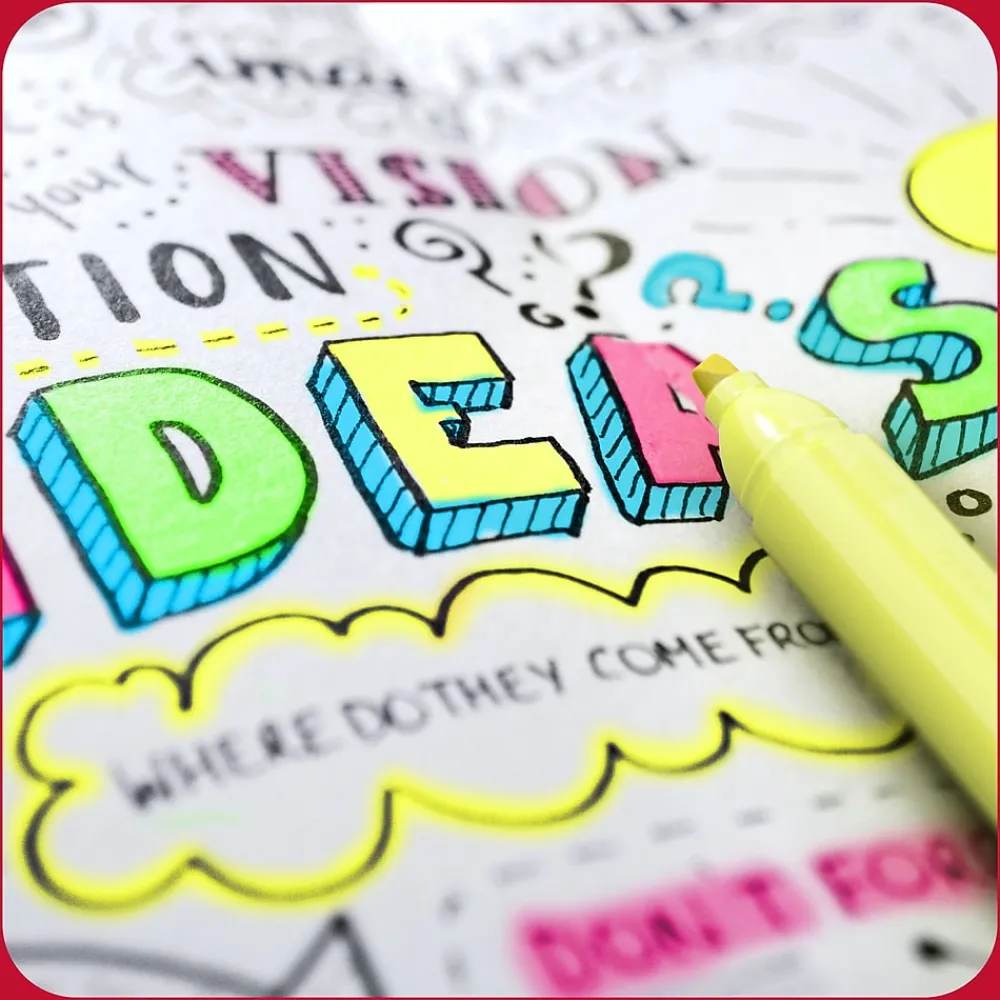 is
your VISION
TION
DEAS
WHERE DO THEY COME FRO
DON'T FOR